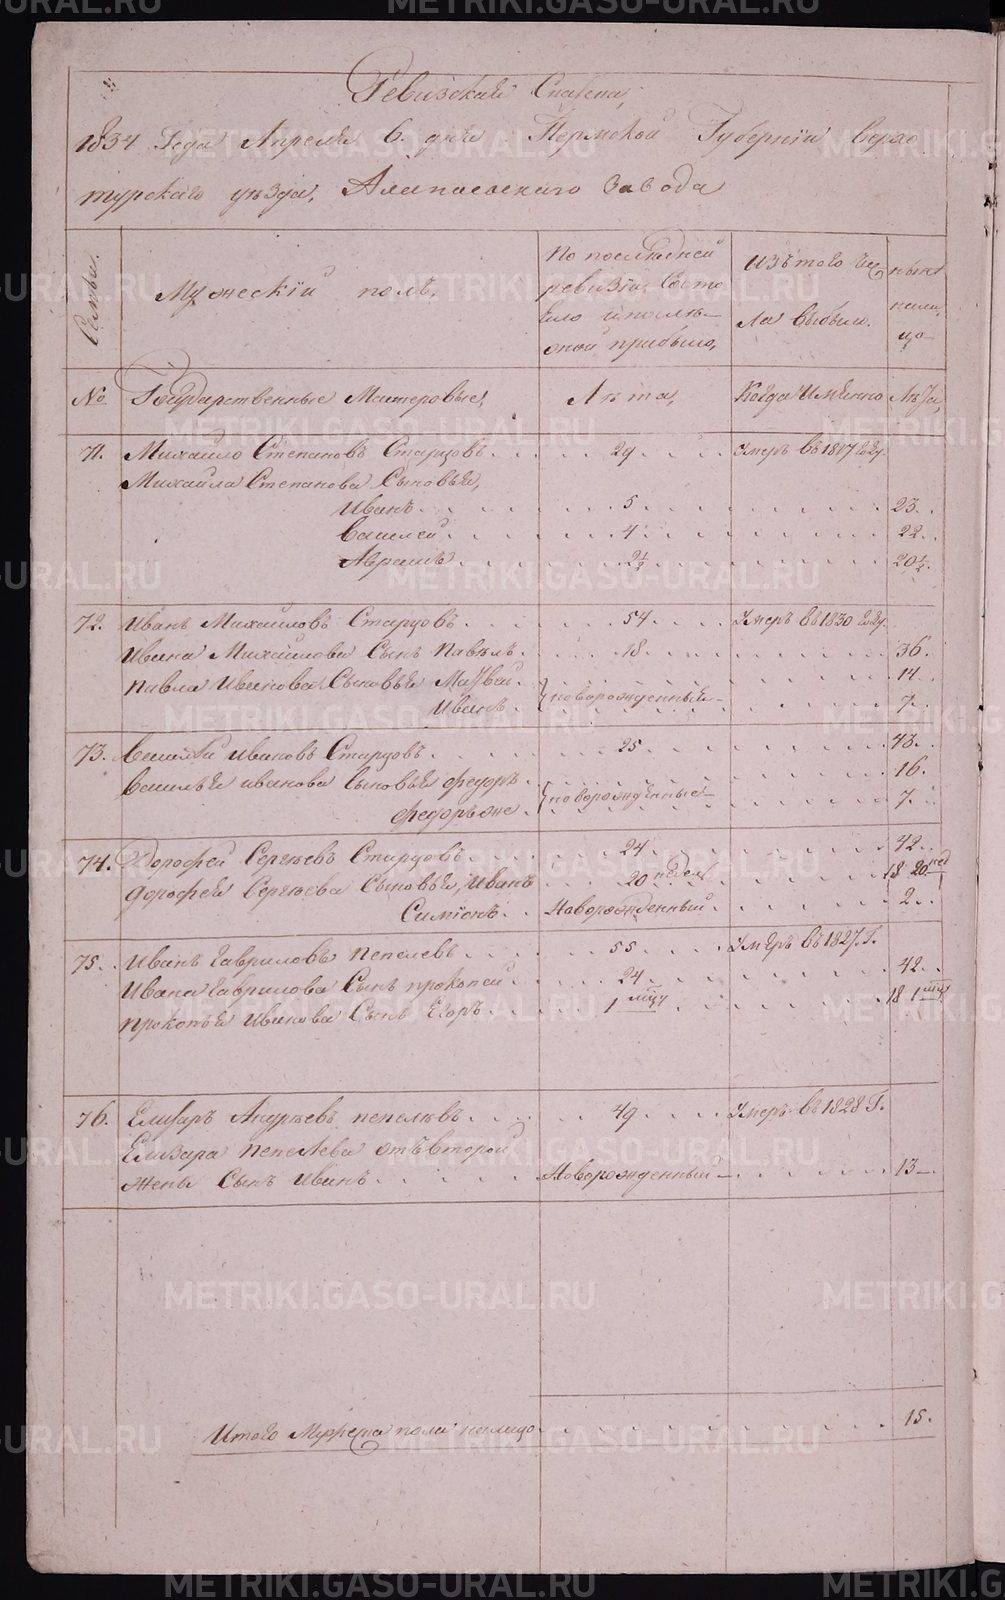 Ревизская Сказка,
1834 Года Апреля 6. дня Пермской Губернiи Верхо
турскаго уѣзда, Алапаевскаго Завода
Семьи.
Мужескiй полъ,
По последней
ревизiи Состо
яло и после
оной прибыло,
Изъ того чис
ла выбыло.
ныне
нали
цо
№
Государственные Мастеровые,
Лѣта,
Когда Имянно
Лѣта,
71. Михайло Степановъ Старцовъ . . . 29 . . . Умеръ въ 1817 году
Михайла Степанова Сыновья,
Иванъ . . . 5 . . . 23.
Василей . . . 4 . . . 22.
Аврамъ . . . 2½ . . . 20½.
72. Иванъ Михайловъ Старцовъ . . . 54 . . . Умеръ въ 1830 году.
Ивана Михайлова Сынъ Павелъ . . . 18 . . . 36.
Павла Иванова Сыновья Матвей . . . 14
Иванъ . . . новорожденныя . . . 7.
73. Василей Ивановъ Старцовъ . . . 25 . . . 43.
Василья Иванова Сыновья Федоръ . . . 16.
Федоръ же . . . новорожденные . . . 7.
74. Дорофей Сергѣевъ Старцовъ . . . 24 . . . 42.
Дорофея Сергѣева Сыновья, Иванъ . . . 20 недель . . . 18 20 нед
Симiонъ . . . Новорожденный . . . 2.
75. Иванъ Гавриловъ Пепелевъ . . . 55 . . . Умеръ въ 1827. Г.
Ивана Гаврилова Сынъ Прокопей . . . 24 . . . 42.
Прокопья Иванова Сынъ Егоръ . . . 1 мцу . . . 18 1 мцу
76. Елизаръ Андреевъ Пепелевъ . . . 49 . . . Умеръ въ 1828 Г.
Елизара Пепелева отъ второй
жены Сынъ Иванъ . . . Новорожденный . . . 13
Итого Мужеска пола налицо . . . 15.
METRIKI.GASO-URAL.RU